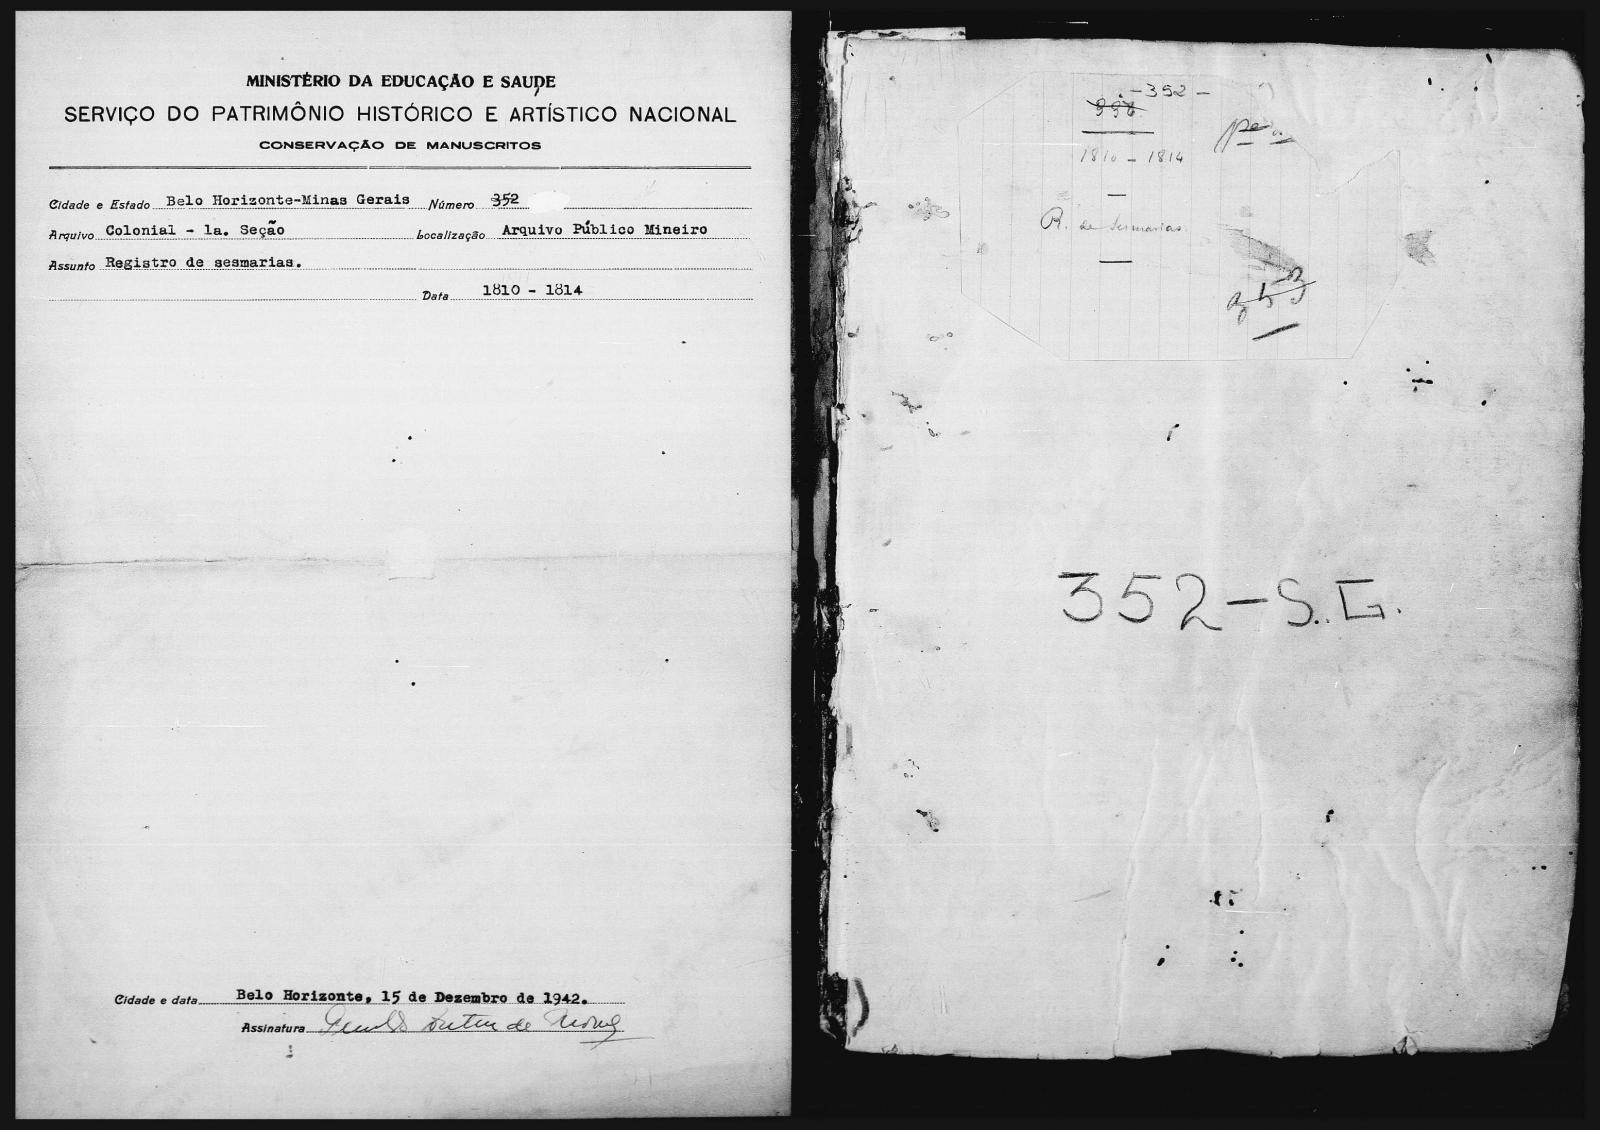 MINISTÉRIO DA EDUCAÇÃO E SAUDE
SERVIÇO DO PATRIMÔNIO HISTÓRICO E ARTÍSTICO NACIONAL
CONSERVAÇÃO DE MANUSCRITOS
Cidade e Estado Belo Horizonte-Minas Gerais Número 352
Arquivo Colonial - 1a. Seção Localização Arquivo Público Mineiro
Assunto Registro de sesmarias.
Data 1810 - 1814
Cidade e data Belo Horizonte, 15 de Dezembro de 1942.
Assinatura
- 352 -
1810 - 1814
R. de Sesmarias.
352 - S.G.